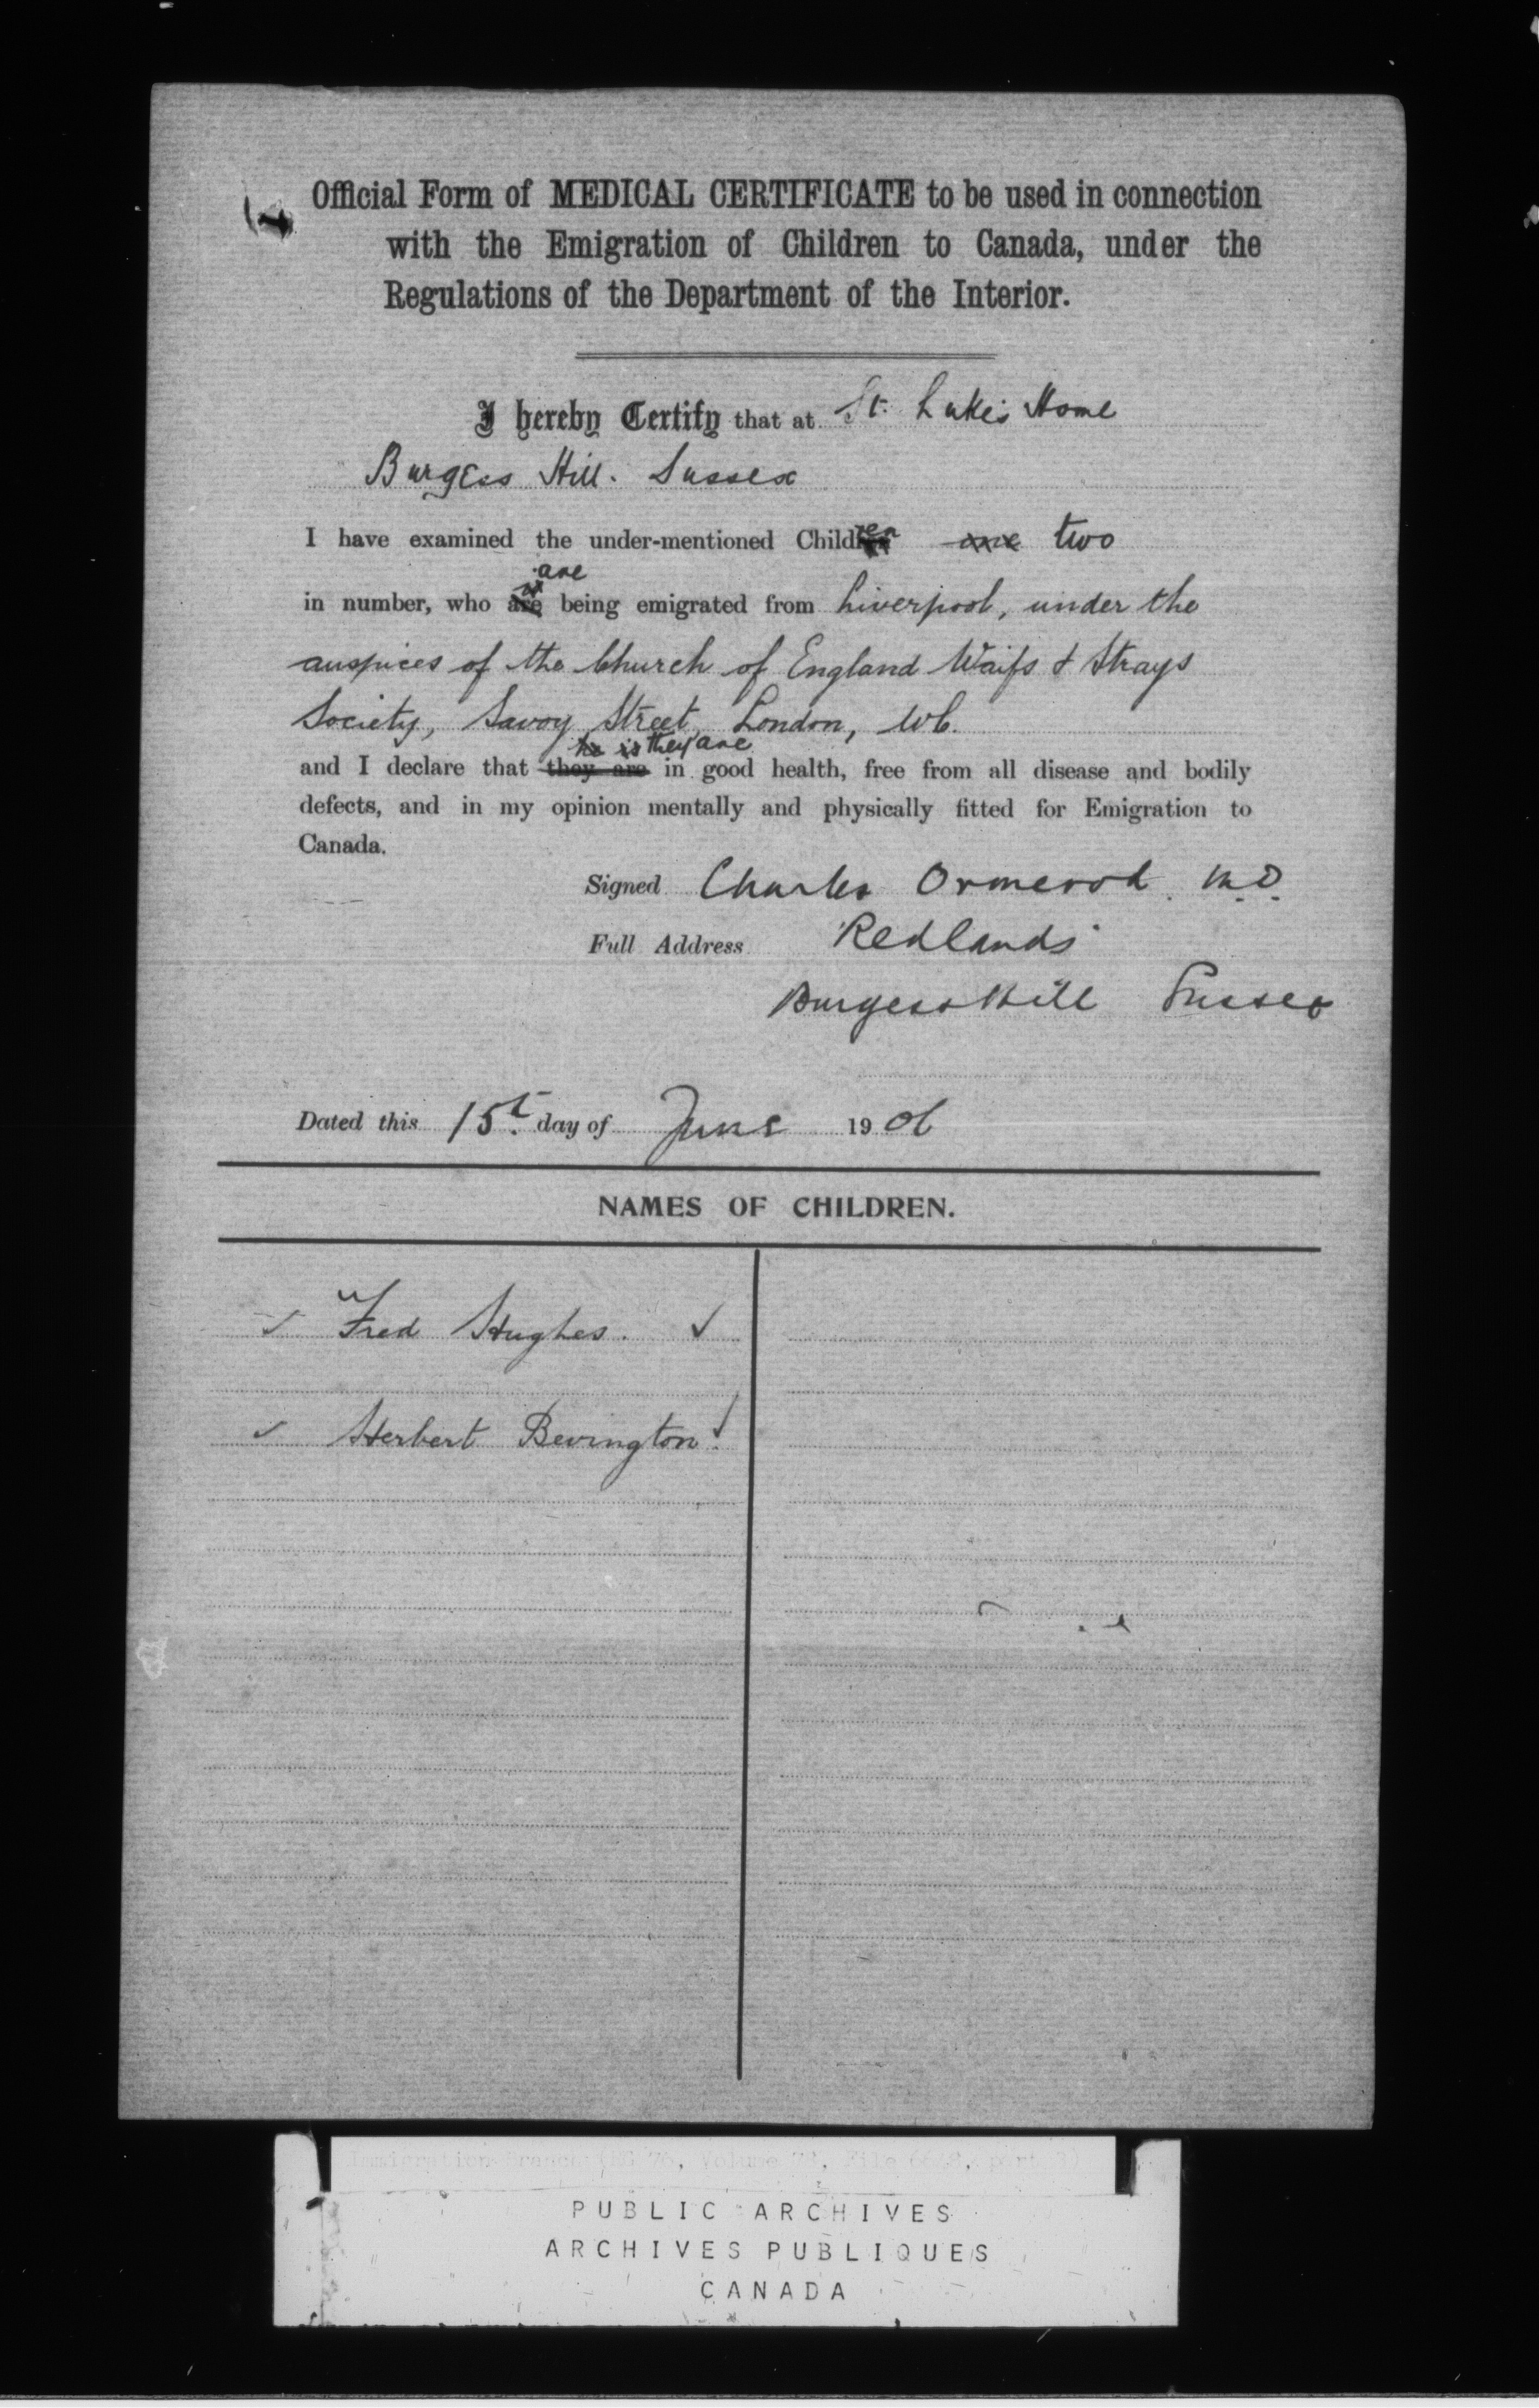 Official Form of MEDICAL CERTIFICATE to be used in connection
with the Emigration of Children to Canada, under the
Regulations of the Department of the Interior.
I hereby Certify that at St. Luke's Home
Burgess Hill. Sussex
I have examined the under-mentioned Children one two
are
in number, who are being emigrated from Liverpool, under the
auspices of the Church of England Waifs & Strays
Society, Savoy Street, London, WC.
he is they are
and I declare that they are in good health, free from all disease and bodily
defects, and in my opinion mentally and physically fitted for Emigration to
Canada.
Signed Charles Ormerod. M.D.
Full Address Redlands
Burgess Hill Sussex
Dated this 15th day of June 1906
NAMES OF CHILDREN.
✓ Fred Hughes. ✓
✓ Herbert Bevington. ✓
PUBLIC ARCHIVES
ARCHIVES PUBLIQUES
CANADA